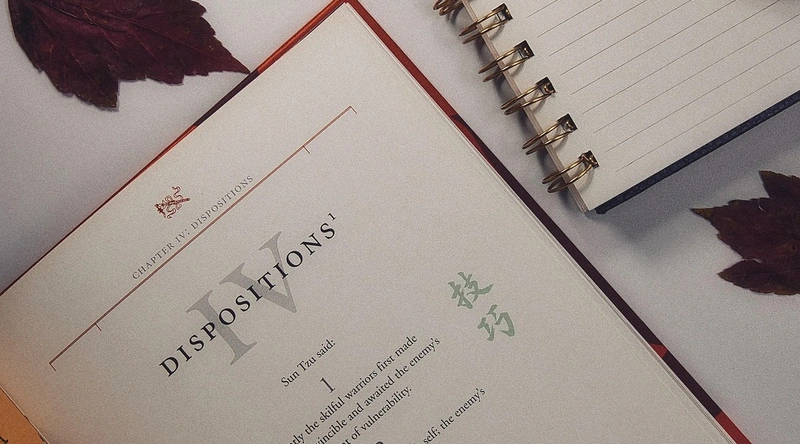 CHAPTER IV: DISPOSITIONS
IV
DISPOSITIONS¹
技
巧
Sun Tzu said:
1
the skilful warriors first made
and awaited the enemy's
of vulnerability.
self; the enemy's